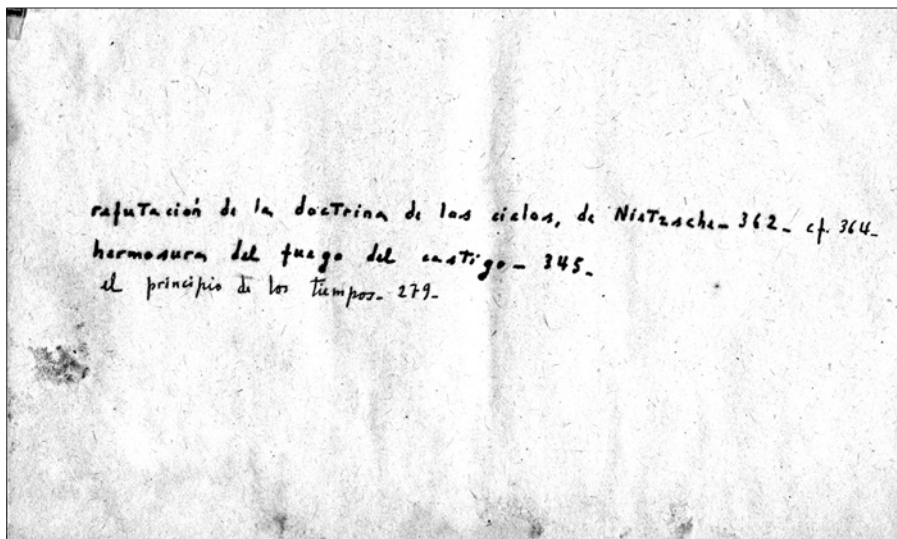 refutación de la doctrina de los ciclos, de Nietzsche_ 362_ cf. 364_
hermosura del fuego del castigo_ 345_
el principio de los tiempos_ 279_